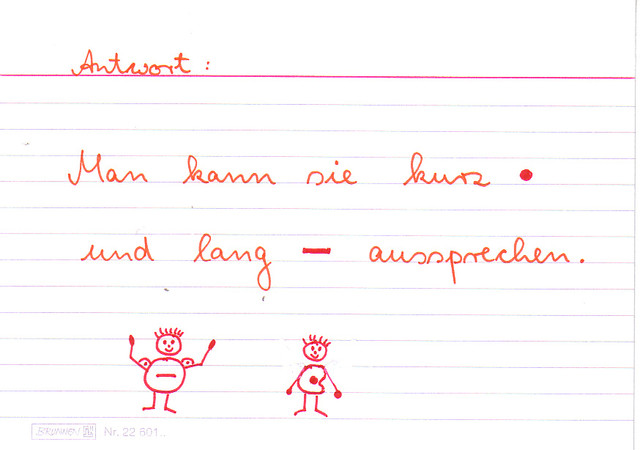 Antwort:
Man kann sie kurz •
und lang – aussprechen.
BRUNNEN Nr. 22 601